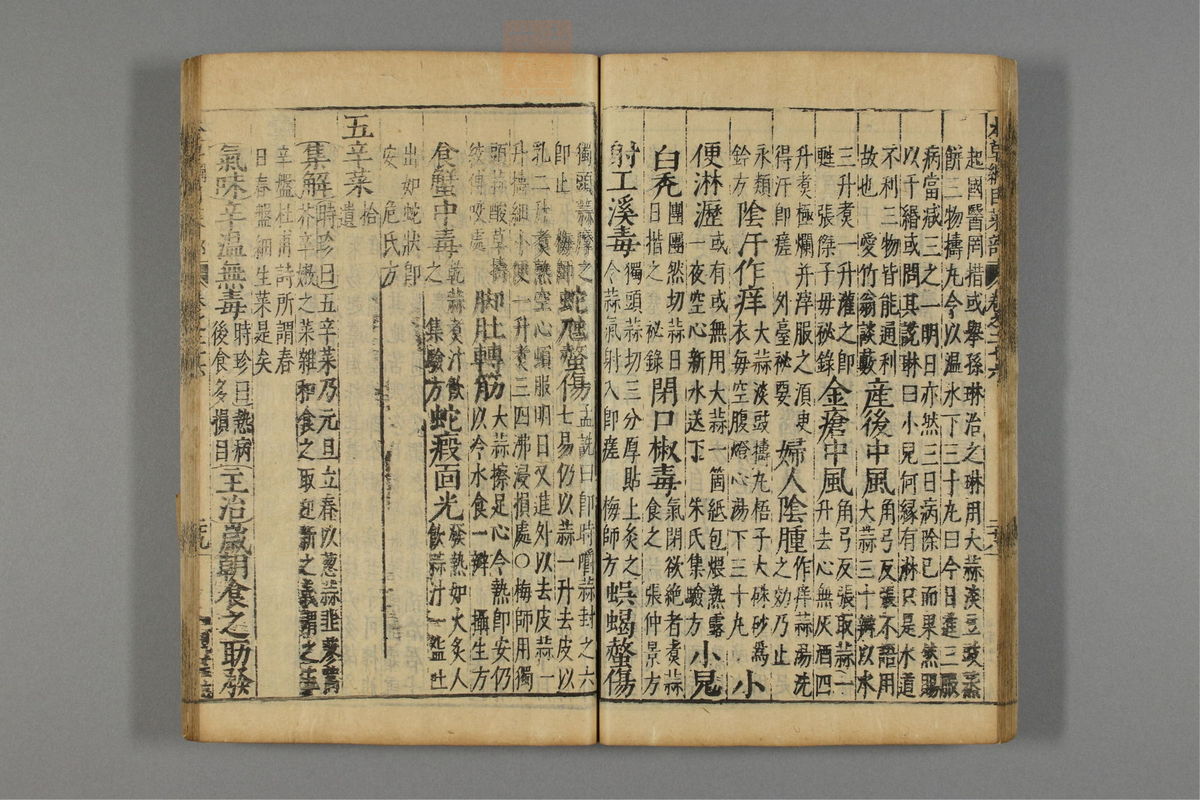 本草綱目菜部 卷之二十六
起國醫罔措或舉孫琳治之琳用大蒜淡豆豉蒸
餅三物擣丸令以温水下三十丸曰今日進三服
病當減三之一明日亦然三日病除已而果然賜
以千緡或問其說琳曰小兒何縁有淋只是水道
不利三物皆能通利
故也 愛竹翁談藪
産後中風
角弓反張不語用
大蒜三十瓣以水
三升煮一升灌之卽
甦 張傑子母秘錄
金瘡中風
角弓反張取蒜一
升去心無灰酒四
升煮極爛并滓服之須臾
得汗卽瘥 外臺秘要
婦人陰腫
作痒蒜湯洗
之効乃止
永類
鈐方
陰汗作痒
大蒜淡豉擣丸梧子大硃砂爲
衣每空腹燈心湯下三十丸
小
便淋瀝
或有或無用大蒜一箇紙包煨熟露
一夜空心新水送下 朱氏集驗方
小兒
白禿
團團然切蒜日
日揩之 秘錄
閉口椒毒
氣閉欲絶者煮蒜
食之 張仲景方
射工溪毒
獨頭蒜切三分厚貼上灸之
令蒜氣射入卽瘥 梅師方
蜈蝎螫傷
獨頭蒜摩之
卽止 梅師
蛇虺螫傷
孟詵曰卽時嚼蒜封之六
七易仍以蒜一升去皮以
乳二升煮熟空心頓服明日又進外以去皮蒜一
升擣細小便一升煮三四沸浸損處○梅師用獨
頭蒜酸草擣
絞傅咬處
脚肚轉筋
大蒜擦足心令熱卽安仍
以冷水食一瓣 攝生方
食蟹中毒
乾蒜煮汁飲
之 集驗方
蛇瘕面光
發熱如火炙人
飲蒜汁一盌吐
出如蛇狀卽
安 危氏方
五辛菜 拾遺
集解
時珍曰五辛菜乃元旦立春以葱蒜韭蓼蒿
芥辛嫩之菜雜和食之取迎新之義謂之五
辛盤杜甫詩所謂春
日春盤細生菜是矣
氣味辛温無毒
時珍曰熱病
後食多損目
主治歲朝食之助發